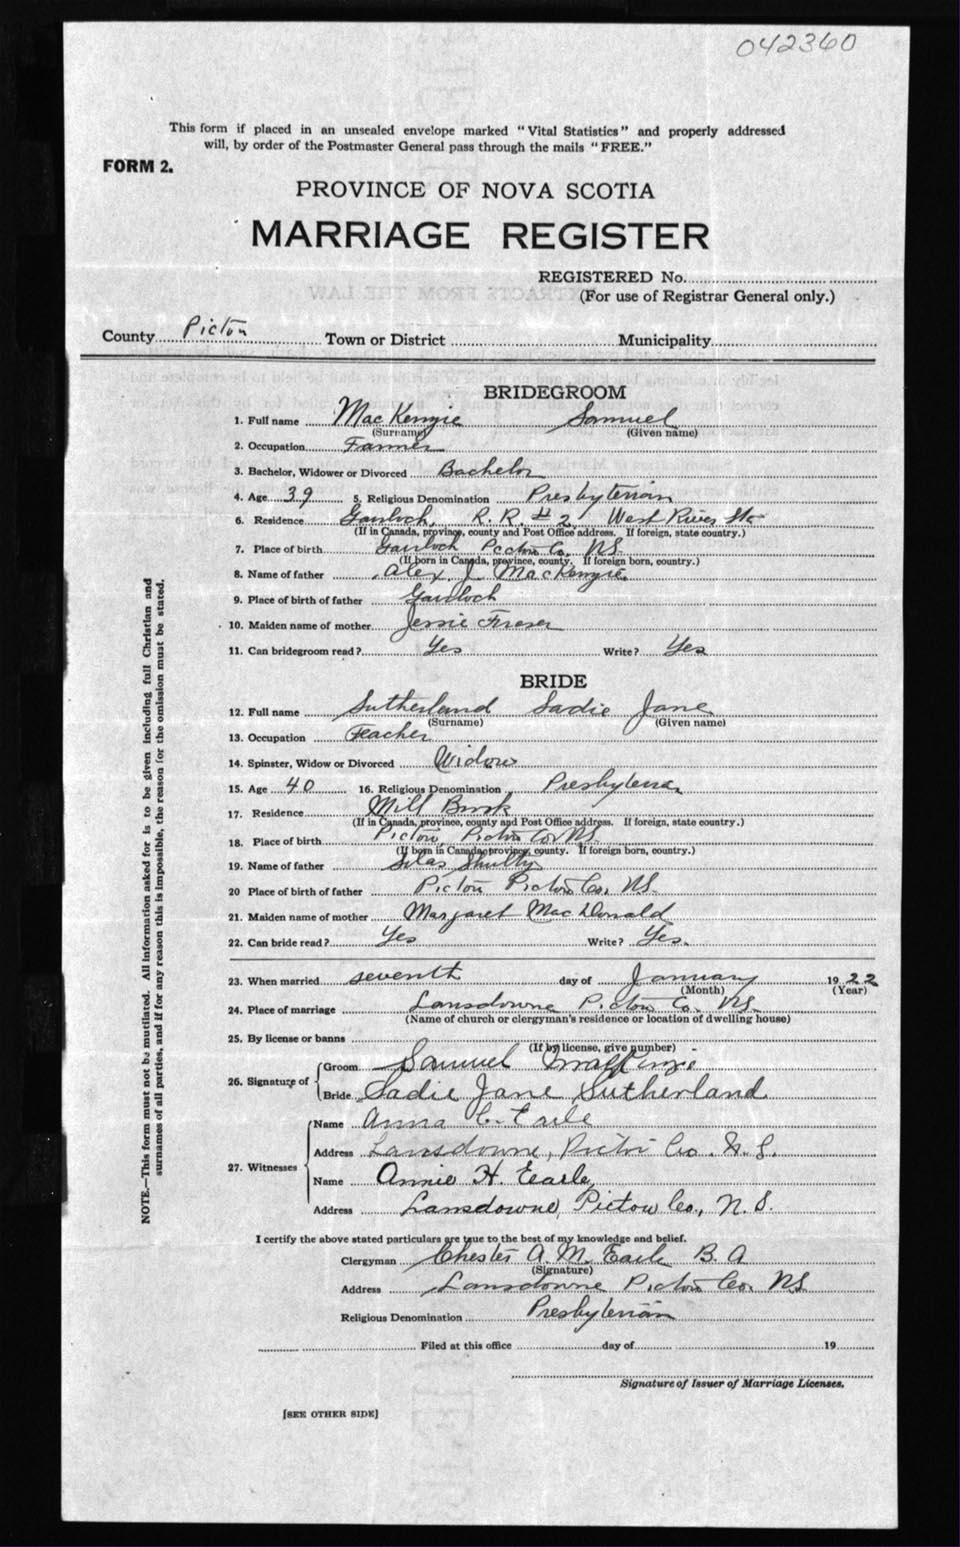 042360
This form if placed in an unsealed envelope marked "Vital Statistics" and properly addressed
will, by order of the Postmaster General pass through the mails "FREE."
FORM 2.
PROVINCE OF NOVA SCOTIA
MARRIAGE REGISTER
REGISTERED No.
(For use of Registrar General only.)
County Pictou Town or District Municipality
BRIDEGROOM
1. Full name MacKenzie Samuel
(Surname) (Given name)
2. Occupation Farmer
3. Bachelor, Widower or Divorced Bachelor
4. Age 39 5. Religious Denomination Presbyterian
6. Residence Gairloch, R. R. # 2 West River Sta
(If in Canada, province, county and Post Office address. If foreign, state country.)
7. Place of birth Gairloch Pictou Co. NS.
(If born in Canada, province, county. If foreign born, country.)
8. Name of father Alex J. MacKenzie
9. Place of birth of father Gairloch
10. Maiden name of mother Jessie Fraser
11. Can bridegroom read? Yes Write? Yes
BRIDE
12. Full name Sutherland Sadie Jane
(Surname) (Given name)
13. Occupation Teacher
14. Spinster, Widow or Divorced Widow
15. Age 40 16. Religious Denomination Presbyterian
17. Residence Mill Brook
(If in Canada, province, county and Post Office address. If foreign, state country.)
18. Place of birth Pictou, Pictou Co NS
(If born in Canada, province, county. If foreign born, country.)
19. Name of father Silas
20 Place of birth of father Pictou Pictou Co. NS.
21. Maiden name of mother Margaret MacDonald
22. Can bride read? Yes Write? Yes.
23. When married seventh day of January 1922
(Month) (Year)
24. Place of marriage Lansdowne Pictou Co. NS.
(Name of church or clergyman's residence or location of dwelling house)
25. By license or banns
(If by license, give number)
26. Signature of Groom Samuel MacKenzie
Bride Sadie Jane Sutherland
27. Witnesses Name Anna C. Earle
Address Lansdowne, Pictou Co. N. S.
Name Annie H. Earle
Address Lansdowne, Pictou Co., N. S.
I certify the above stated particulars are true to the best of my knowledge and belief.
Clergyman Chester A. M. Earle B. A
(Signature)
Address Lansdowne Pictou Co. NS
Religious Denomination Presbyterian
Filed at this office day of 19
Signature of Issuer of Marriage Licenses.
[SEE OTHER SIDE]
NOTE.—This form must not be mutilated. All information asked for is to be given including full Christian and
surnames of all parties, and if for any reason this is impossible, the reason for the omission must be stated.